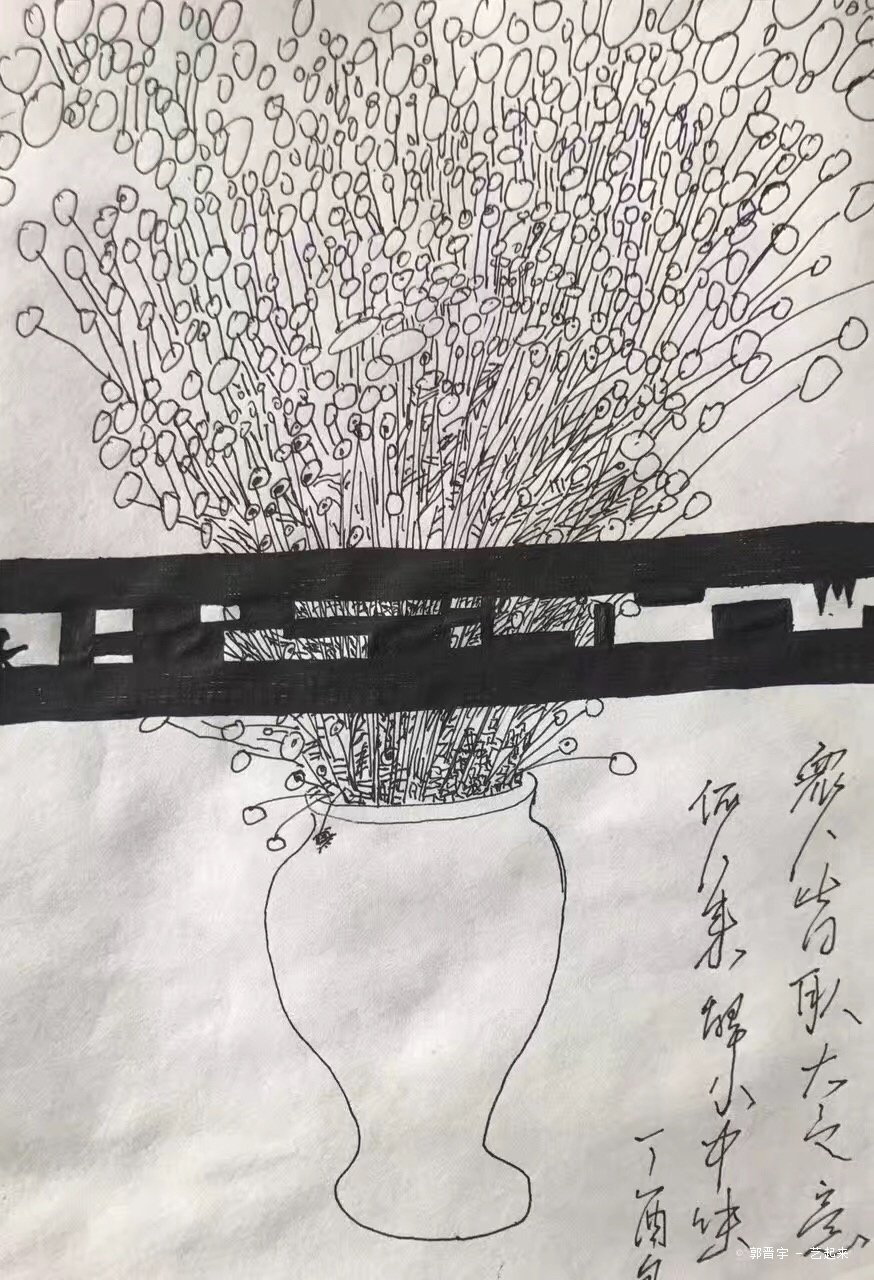 众人皆取大之意
何人来解小中味
丁酉
© 郭晋宇 – 艺起来